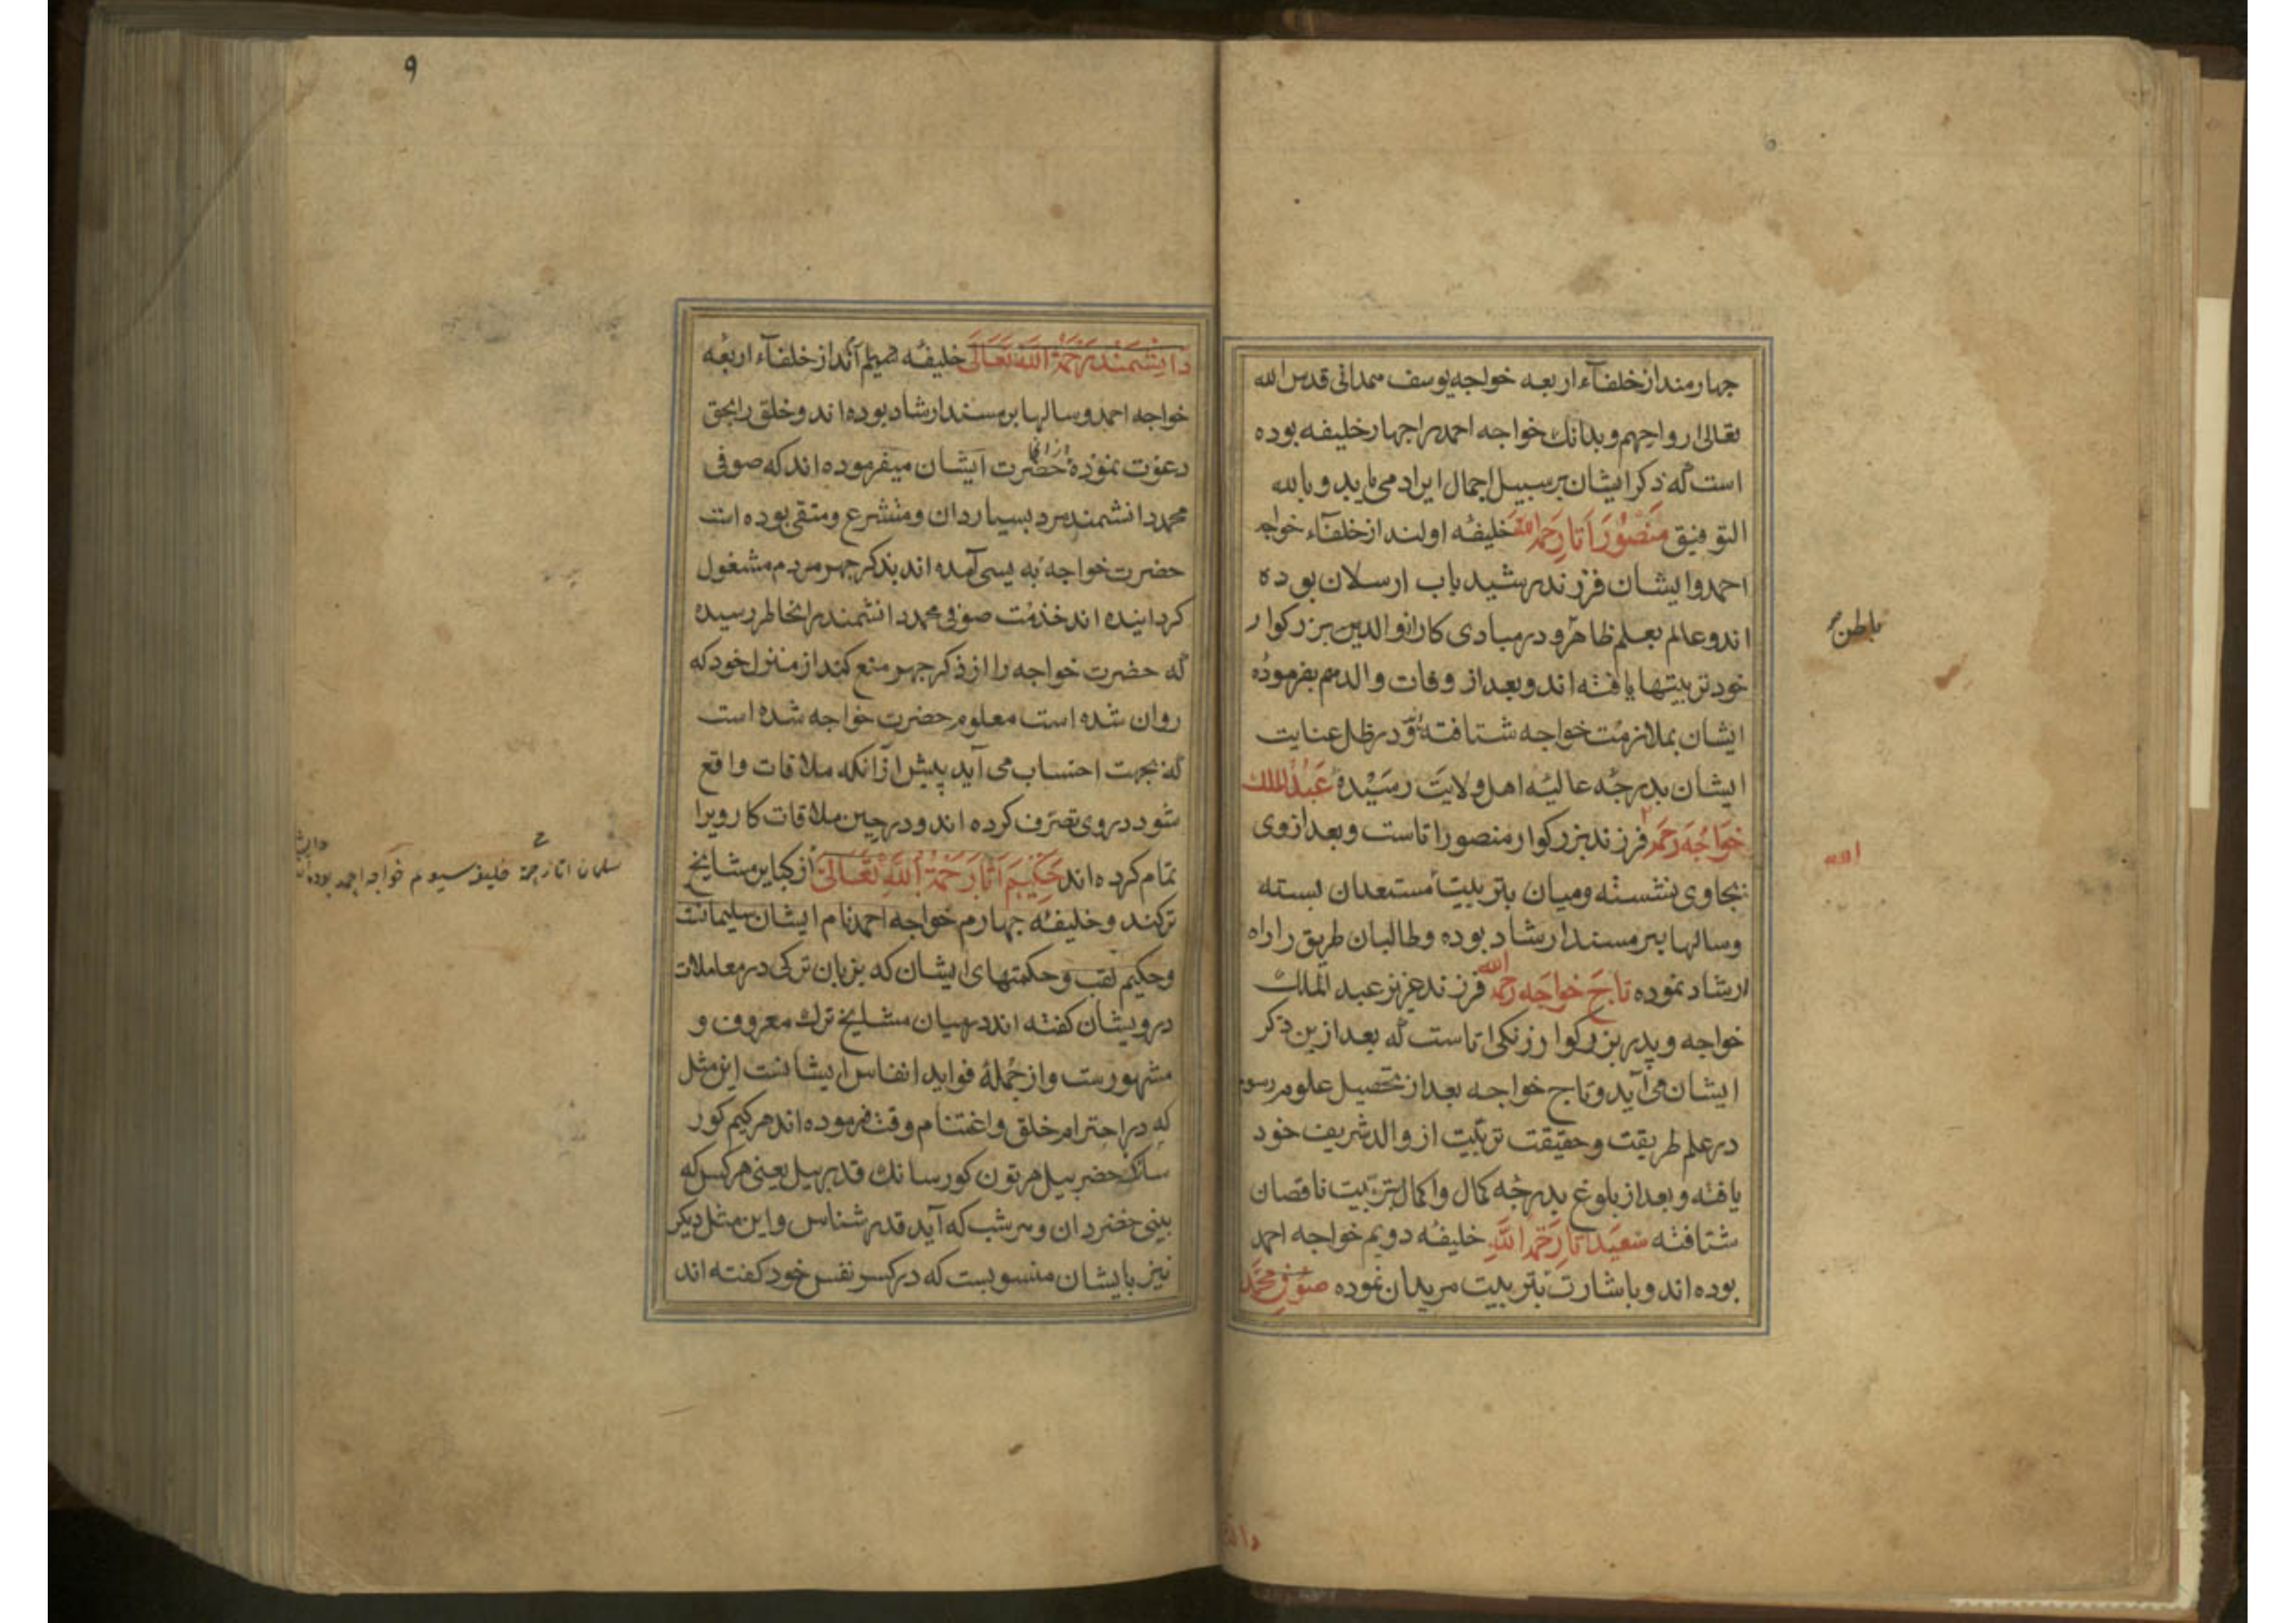 چهارمند از خلفآء اربعه خواجه یوسف همدانی قدس الله
تعالی ارواحهم وبدانك خواجه احمد را چهار خلیفه بوده
است که ذکر ایشان بر سبیل اجمال ایراد می یابد و بالله
التوفیق مَنصُور اَتا رَحِمَه اللّه خلیفهٔ اولند از خلفآء خواجه
احمد وایشان فرزند رشید باب ارسلان بوده
اند وعالم بعلم ظاهر و در مبادی کار از والدین بزرکوار
باطن
خود تربیتها یافته اند وبعد از وفات والد هم بفرمودهٔ
ایشان بملازمت خواجه شتافته و در ظل عنایت
ایشان بدرجهٔ عالیهٔ اهل ولایت رسیده عَبدُ الملك
خواجَه رَحمه فرزند بزرکوار منصور اتاست وبعد از وی
الله
بجاوی نشسته ومیان بتربیت مستعدان بسته
وسالها بر مسند ارشاد بوده وطالبان طریق را راه
ارشاد نموده تاج خواجَه رحمه الله فرزند عزیز عبد الملك
خواجه و پدر بزرکوار زنکی اتاست که بعد از ین ذکر
ایشان می آید و تاج خواجه بعد از تحصیل علوم رسوم
در علم طریقت وحقیقت تربیت از والد شریف خود
یافته و بعد از بلوغ بدرجهٔ کمال واکمال بتربیت ناقصان
شتافته سَعید اَتا رَحِمَه اللّه خلیفهٔ دویم خواجه احمد
بوده اند و باشارت بتربیت مریدان نموده صوفی محمّد
دان
٩
دانِشمَند رَحمَةُ اللّه تَعالی خلیفهٔ سیم اند از خلفآء اربعه
خواجه احمد وسالها بر مسند ارشاد بوده اند وخلق را بحق
دعوت نموده حضرت ایشان میفرموده اند که صوفی
محمد دانشمند مرد بسیار دان ومتشرع ومتقی بوده است
حضرت خواجه به یسی آمده اند بذکر جهر مردم مشغول
کردانیده اند خدمت صوفی محمد دانشمند را بخاطر رسیده
که حضرت خواجه را از ذکر جهر منع کند از منزل خود که
روان شده است معلوم حضرت خواجه شده است
که بجهت احتساب می آید پیش از آنکه ملاقات واقع
شود در وی تصرف کرده اند و در حین ملاقات کار ویرا
تمام کرده اند حَکیم اَتا رَحمَةُ اللّه تَعالی از کبار این مشایخ
سلمان اتا رحمة خلیفهٔ سیوم خواجه احمد بوده
ترکند وخلیفهٔ چهارم خواجه احمد نام ایشان سلیمانست
وحکیم لقب وحکمتهای ایشان که بزبان ترکی در معاملات
درویشان کفته اند در میان مشایخ ترك معروف و
مشهورست واز جملهٔ فواید انفاس ایشانست این مثل
که در احترام خلق واغتنام وقت فرموده اند هر کیم کور
سانك حضر بیل هر تون کور سانك قدر بیل یعنی هر کس که
بینی خضر دان و هر شب که آید قدر شناس و این مثل دیکر
نیز بایشان منسوبست که در کسر نفس خود کفته اند